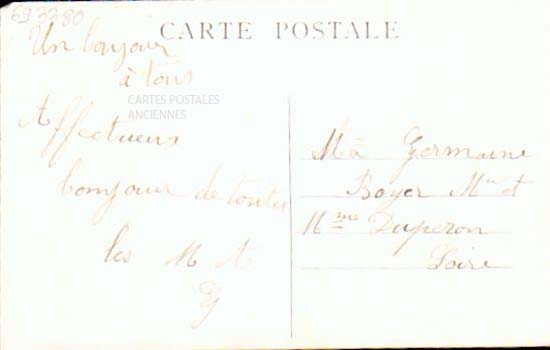 693380
CARTE POSTALE
Un bonjour
à tous
CARTES POSTALES
ANCIENNES
Affectueux
bonjour de toutes
les
Germaine
Boyer Mr et
Mme Duperon
Loire